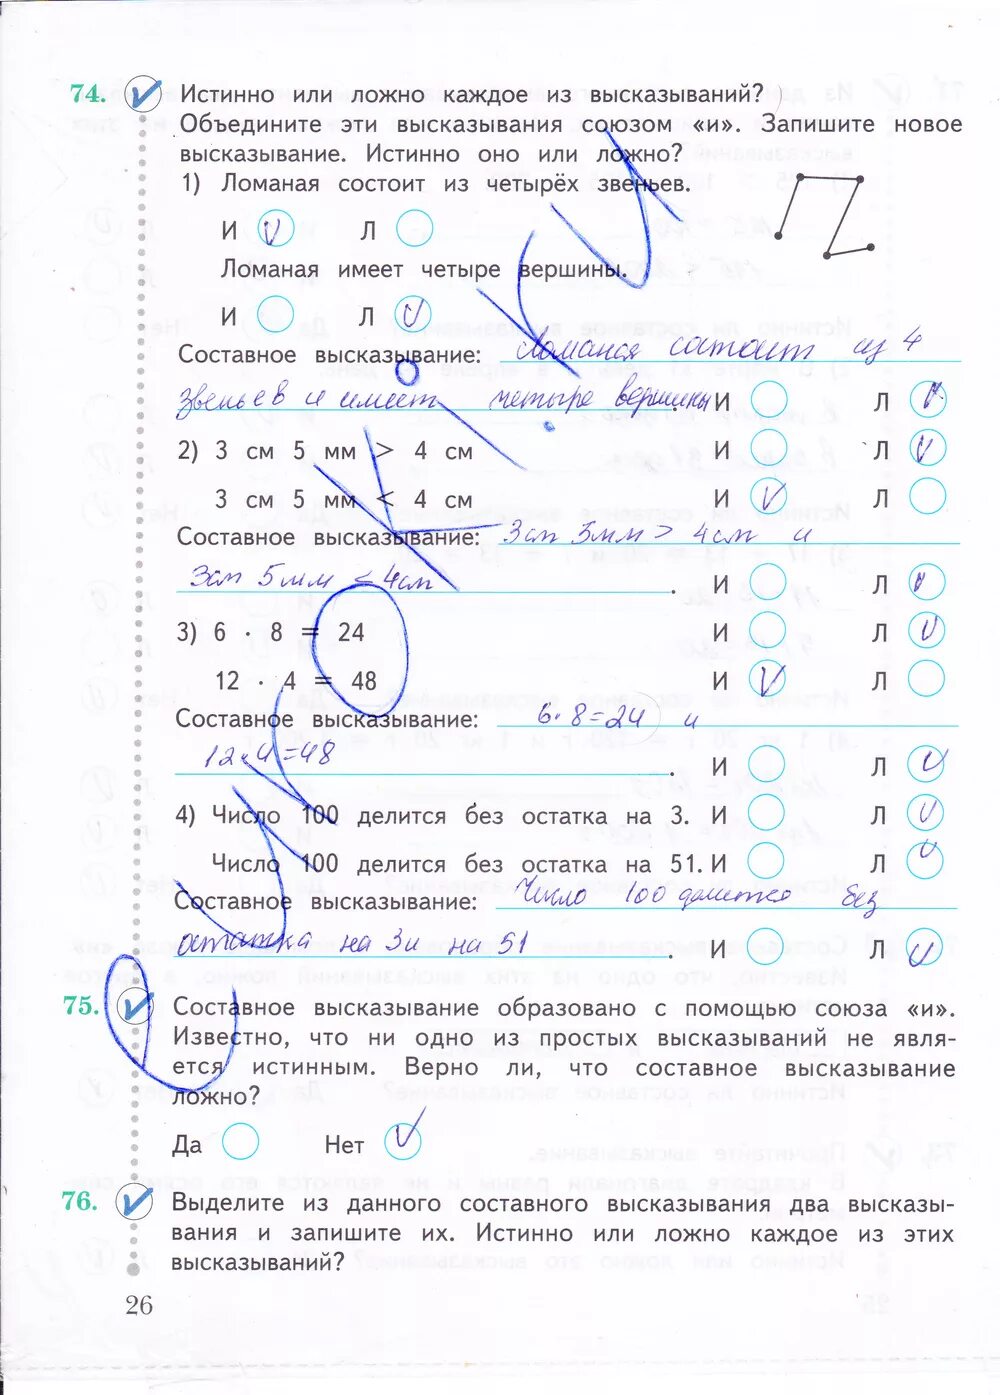 74. Истинно или ложно каждое из высказываний?
Объедините эти высказывания союзом «и». Запишите новое
высказывание. Истинно оно или ложно?
1) Ломаная состоит из четырёх звеньев.
И V Л
Ломаная имеет четыре вершины.
И Л V
Составное высказывание: Ломаная состоит из 4
звеньев и имеет четыре вершины. И Л V
2) 3 см 5 мм > 4 см И Л V
3 см 5 мм < 4 см И V Л
Составное высказывание: 3см 5мм > 4см и
3см 5мм < 4см. И Л V
3) 6 · 8 = 24 И Л V
12 · 4 = 48 И V Л
Составное высказывание: 6·8=24 и
12·4=48. И Л V
4) Число 100 делится без остатка на 3. И Л V
Число 100 делится без остатка на 51. И Л V
Составное высказывание: Число 100 делится без
остатка на 3 и на 51. И Л V
75. Составное высказывание образовано с помощью союза «и».
Известно, что ни одно из простых высказываний не явля-
ется истинным. Верно ли, что составное высказывание
ложно?
Да Нет V
76. Выделите из данного составного высказывания два высказы-
вания и запишите их. Истинно или ложно каждое из этих
высказываний?
26